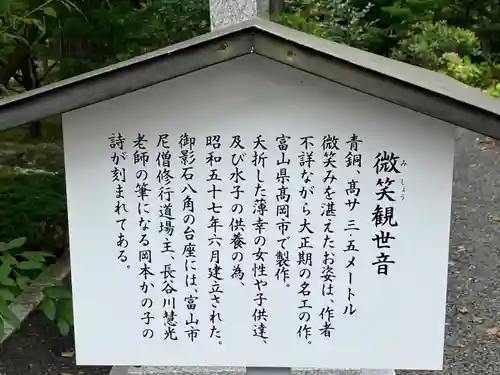 微笑観世音
みしょう
青銅、高サ 三・五メートル
微笑みを湛えたお姿は、作者
不詳ながら大正期の名工の作。
富山県高岡市で製作。
夭折した薄幸の女性や子供達、
及び水子の供養の為、
昭和五十七年六月建立された。
御影石八角の台座には、富山市
尼僧修行道場・主、長谷川慧光
老師の筆になる岡本かの子の
詩が刻まれてある。